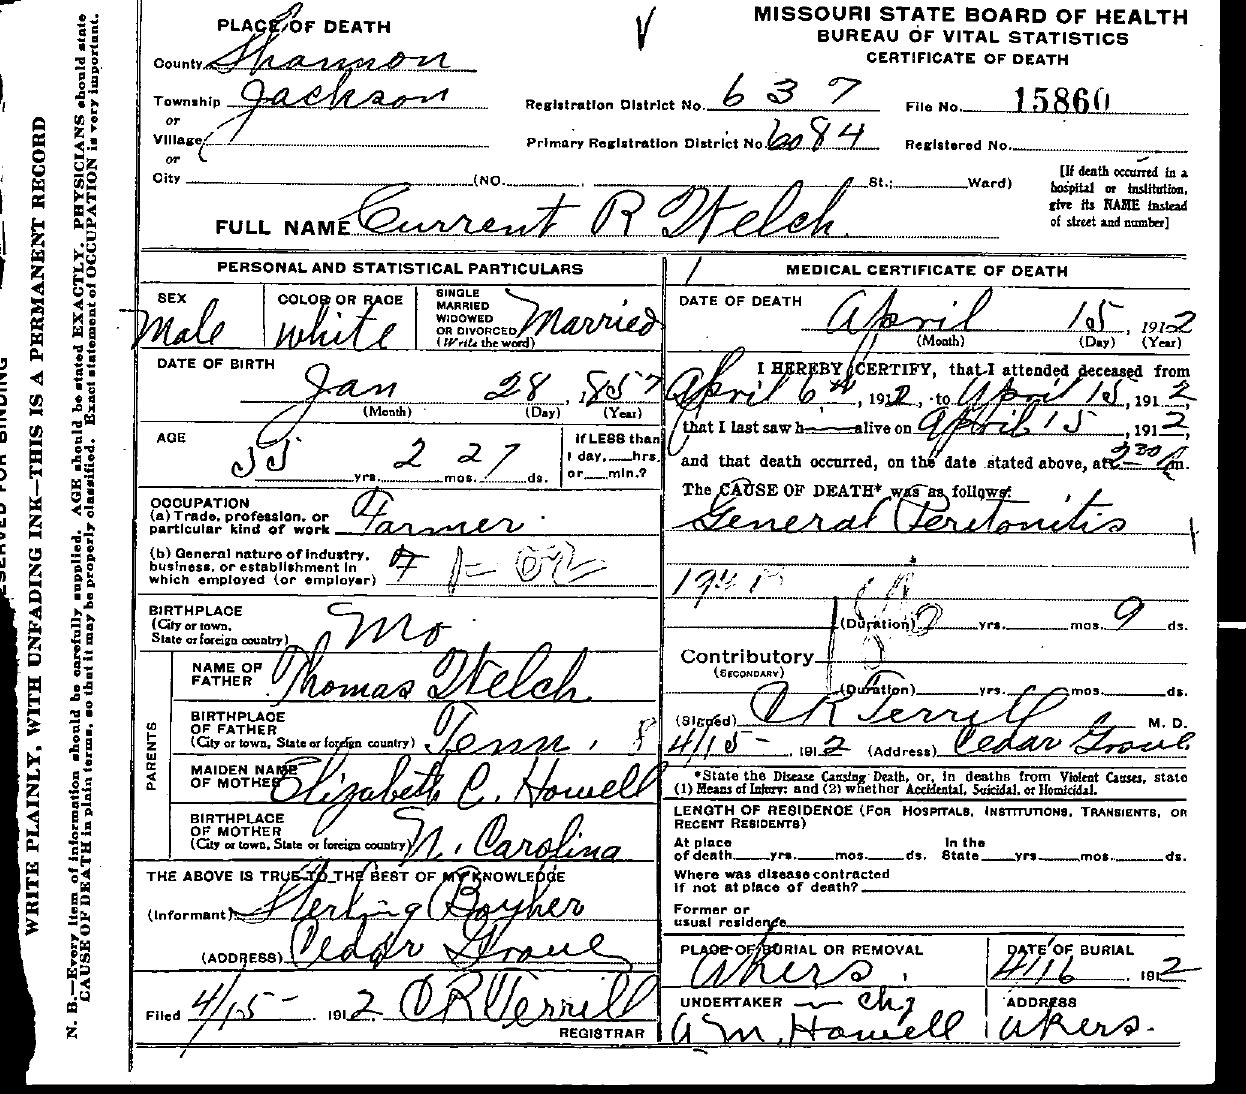 MISSOURI STATE BOARD OF HEALTH
BUREAU OF VITAL STATISTICS
CERTIFICATE OF DEATH
PLACE OF DEATH
County Shannon
Township Jackson
or
Village
or
City (NO. St.; Ward)
Registration District No. 637
File No. 15860
Primary Registration District No. 6084
Registered No.
[If death occurred in a
hospital or institution,
give its NAME instead
of street and number]
FULL NAME Current R Welch
PERSONAL AND STATISTICAL PARTICULARS
SEX
Male
COLOR OR RACE
white
SINGLE
MARRIED
WIDOWED
OR DIVORCED
(Write the word)
Married
DATE OF BIRTH
Jan 28, 1857
(Month) (Day) (Year)
AGE
55 yrs. 2 mos. 27 ds.
If LESS than
1 day, hrs.
or min.?
OCCUPATION
(a) Trade, profession, or
particular kind of work Farmer
(b) General nature of industry,
business, or establishment in
which employed (or employer)
BIRTHPLACE
(City or town,
State or foreign country) Mo
PARENTS
NAME OF
FATHER Thomas Welch
BIRTHPLACE
OF FATHER
(City or town, State or foreign country) Tenn.
MAIDEN NAME
OF MOTHER Elizabeth C. Howell
BIRTHPLACE
OF MOTHER
(City or town, State or foreign country) N. Carolina
THE ABOVE IS TRUE TO THE BEST OF MY KNOWLEDGE
(Informant) Sterling Boyher
(ADDRESS) Cedar Grove
Filed 4/15- 1912 O R Terrill
REGISTRAR
MEDICAL CERTIFICATE OF DEATH
DATE OF DEATH
April 15, 1912
(Month) (Day) (Year)
I HEREBY CERTIFY, that I attended deceased from
April 6th, 1912, to April 15, 1912,
that I last saw h alive on April 15, 1912,
and that death occurred, on the date stated above, at 2 30 P m.
The CAUSE OF DEATH* was as follows:
General Peritonitis
(Duration) yrs. mos. 9 ds.
Contributory
(SECONDARY)
(Duration) yrs. mos. ds.
(Signed) O R Terrill M. D.
4/15- 1912 (Address) Cedar Grove
*State the Disease Causing Death, or, in deaths from Violent Causes, state
(1) Means of Injury; and (2) whether Accidental, Suicidal, or Homicidal.
LENGTH OF RESIDENCE (FOR HOSPITALS, INSTITUTIONS, TRANSIENTS, OR
RECENT RESIDENTS)
At place
of death yrs. mos. ds.
In the
State yrs. mos. ds.
Where was disease contracted
If not at place of death?
Former or
usual residence
PLACE OF BURIAL OR REMOVAL
Akers.
DATE OF BURIAL
4/16 1912
UNDERTAKER
A M. Howell
ADDRESS
Akers.
WRITE PLAINLY, WITH UNFADING INK—THIS IS A PERMANENT RECORD
N. B.—Every item of information should be carefully supplied. AGE should be stated EXACTLY. PHYSICIANS should state
CAUSE OF DEATH in plain terms, so that it may be properly classified. Exact statement of OCCUPATION is very important.